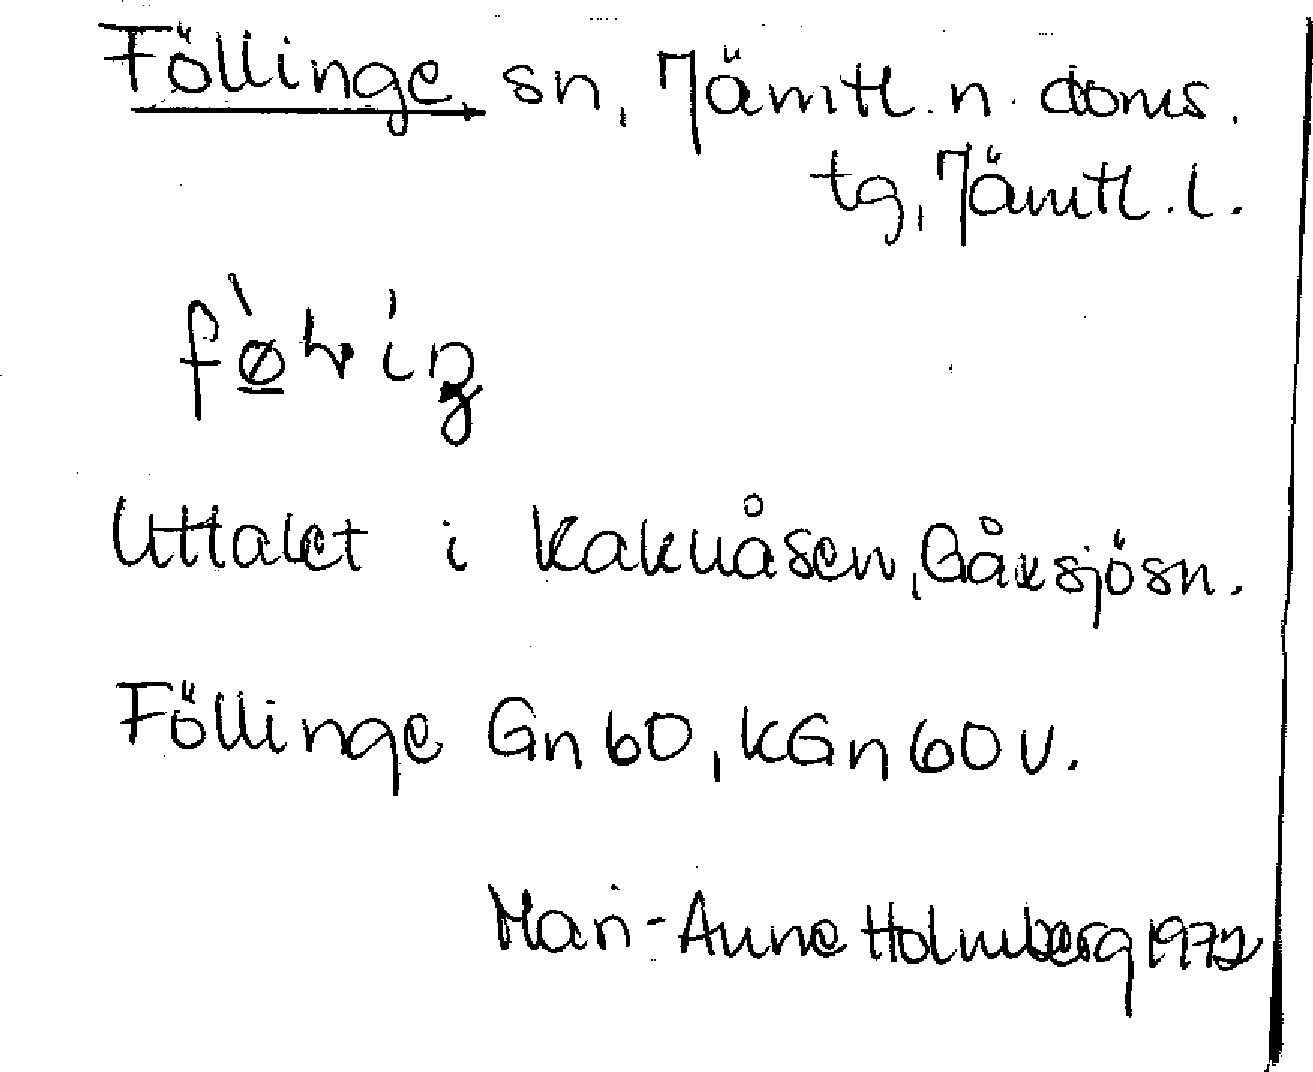 Föllinge sn, Jämtl. n. doms.
tg, Jämtl. l.
Uttalet i Kakuåsen, Gåxsjö sn.
Föllinge Gn 60, KGn 60 V.
Mari-Anne Holmberg 1972